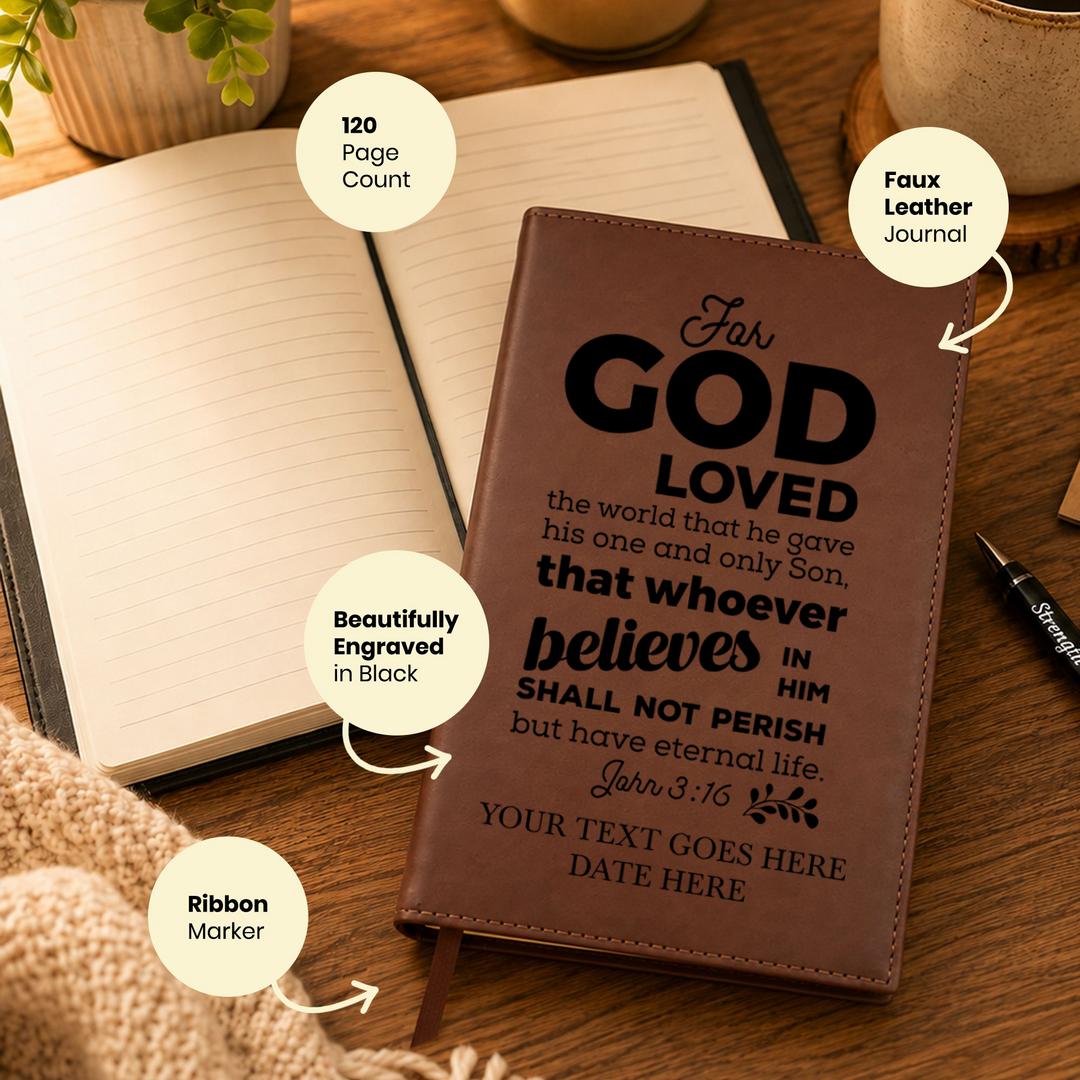 120
Page
Count
Faux
Leather
Journal
For
GOD
LOVED
the world that he gave
his one and only Son,
that whoever
believes IN
HIM
SHALL NOT PERISH
but have eternal life.
John 3:16
YOUR TEXT GOES HERE
DATE HERE
Beautifully
Engraved
in Black
Ribbon
Marker
Strength